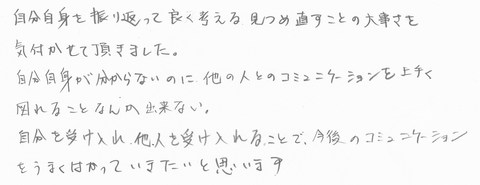 自分自身を振り返って良く考える見つめ直すことの大事さを
気付かせて頂きました。
自分自身が分からないのに他の人とのコミュニケーションを上手く
図れることなんか出来ない。
自分を受け入れ、他人を受け入れることで、今後のコミュニケーション
をうまくはかっていきたいと思います